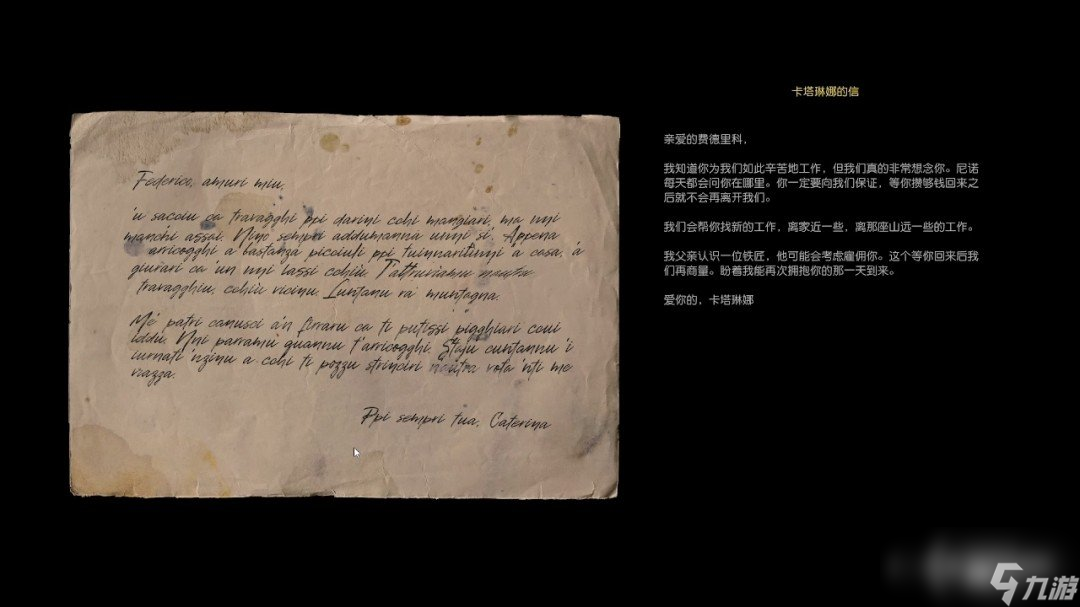 Federico, amuri miu,
'u sacciu ca travagghi ppi darini cchi mangiari, ma uni
manchi assai. Nino sempri addumanna unni si'. Appena
arricogghi a bastanza picciuli ppi tuinnaritinni a casa, 'a
giurari ca 'un uni lassi cchiù. T'attruviamu nautru
travagghiu, cchiù vicinu. Luntanu ra' muntagna.
Me' patri canusci a'n firraru ca ti putissi pigghiari ccui
iddu. Uni parramu quannu t'arricogghi. Staju cuntannu 'i
iurnati 'nzinu a cchi ti pozzu strinciri nautra vota 'nti me
vrazza.
Ppi sempri tua, Caterina
卡塔琳娜的信
亲爱的费德里科，
我知道你为我们如此辛苦地工作，但我们真的非常想念你。尼诺
每天都会问你在哪里。你一定要向我们保证，等你攒够钱回来之
后就不会再离开我们。
我们会帮你找新的工作，离家近一些，离那座山远一些的工作。
我父亲认识一位铁匠，他可能会考虑雇佣你。这个等你回来后我
们再商量。盼着我能再次拥抱你的那一天到来。
爱你的，卡塔琳娜
九游